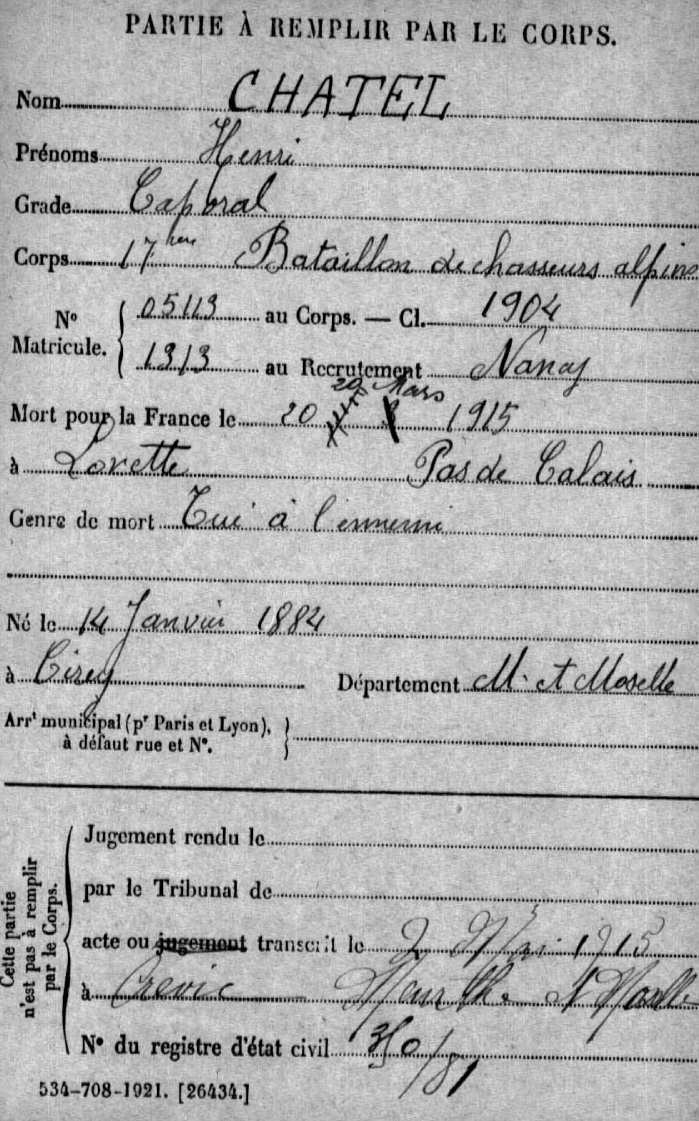 PARTIE À REMPLIR PAR LE CORPS.
Nom CHATEL
Prénoms Henri
Grade Caporal
Corps 17ème Bataillon de chasseurs alpins
Nº Matricule. 05113 au Corps. — Cl. 1904
1313 au Recrutement Nancy
20 Mars
Mort pour la France le 20 1915
à Lorette Pas de Calais
Genre de mort Tué à l'ennemi
Né le 14 Janvier 1884
à Cirey Département M. et Moselle
Arrt municipal (pr Paris et Lyon),
à défaut rue et Nº.
Cette partie n'est pas à remplir par le Corps.
Jugement rendu le
par le Tribunal de
acte ou jugement transcrit le 2 Mai 1915
à Crevic Meurthe et Moselle
Nº du registre d'état civil 350/81
534-708-1921. [26434.]